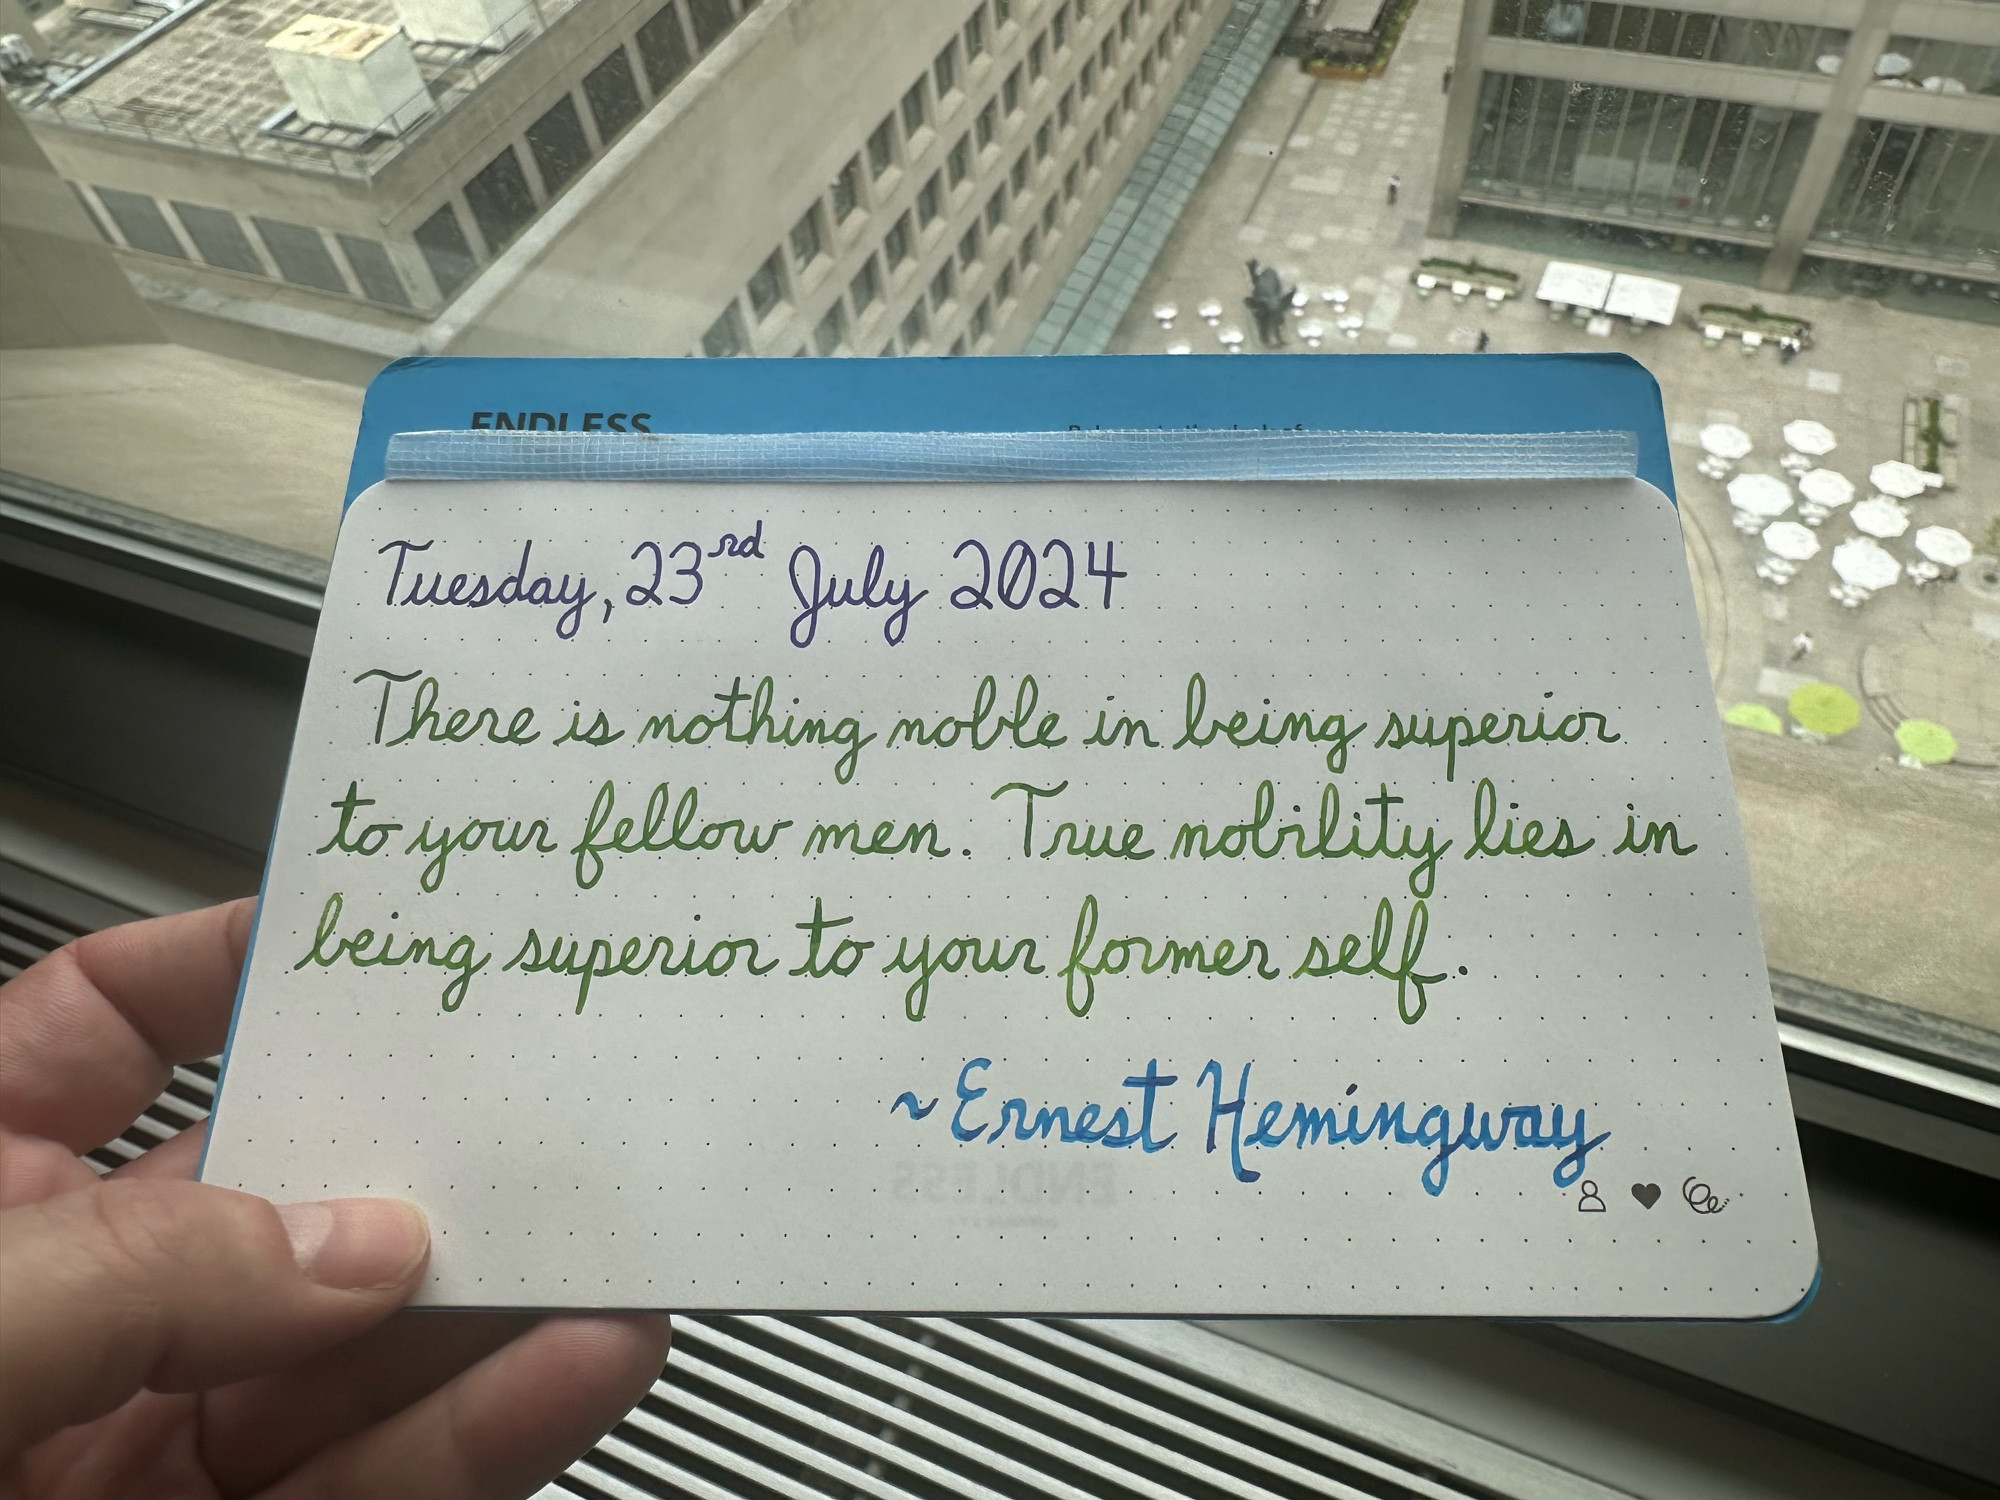 ENDLESS
Tuesday, 23rd July 2024
There is nothing noble in being superior
to your fellow men. True nobility lies in
being superior to your former self.
~Ernest Hemingway
ENDLESS